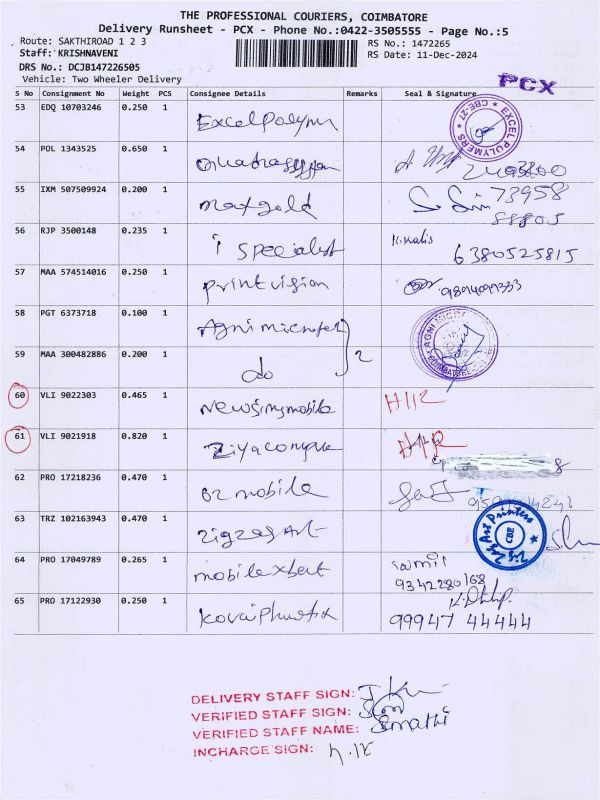 THE PROFESSIONAL COURIERS, COIMBATORE
Delivery Runsheet - PCX - Phone No.:0422-3505555 - Page No.:5
Route: SAKTHIROAD 1 2 3
Staff: KRISHNAVENI
DRS No.: DCJB147226505
Vehicle: Two Wheeler Delivery
RS No.: 1472265
RS Date: 11-Dec-2024
PCX
S No Consignment No Weight PCS Consignee Details Remarks Seal & Signature
53 EDQ 10703246 0.250 1 Excel Polymer
EXCEL POLYMERS CBE-27
54 POL 1343525 0.650 1
55 IXM 507509924 0.200 1 maxgold 73958
88805
56 RJP 3500148 0.235 1 i specialist K. malis
6380525815
57 MAA 574514016 0.250 1 print vision
58 PGT 6373718 0.100 1 Agni microfet
2
AGNI MICRO COIMBATORE
59 MAA 300482886 0.200 1 do
60 VLI 9022303 0.465 1 H12
61 VLI 9021918 0.820 1
62 PRO 17218236 0.470 1 oz mobile
63 TRZ 102163943 0.470 1 zigzag Art
Zig Zag Art Printers CBE
64 PRO 17049789 0.265 1 mobile xbert
9342280168
65 PRO 17122930 0.250 1 99947 44444
DELIVERY STAFF SIGN:
VERIFIED STAFF SIGN:
VERIFIED STAFF NAME: Sumathi
INCHARGE SIGN: